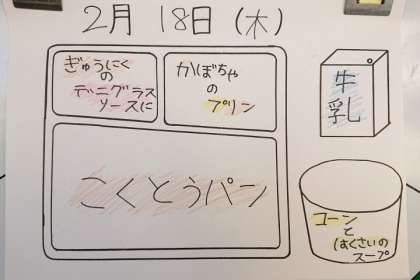 2月 18日(木)
ぎゅうにく
の
デニグラス
ソースに
かぼちゃ
の
プリン
牛
乳
こくとうパン
コーン
と
はくさいの
スープ